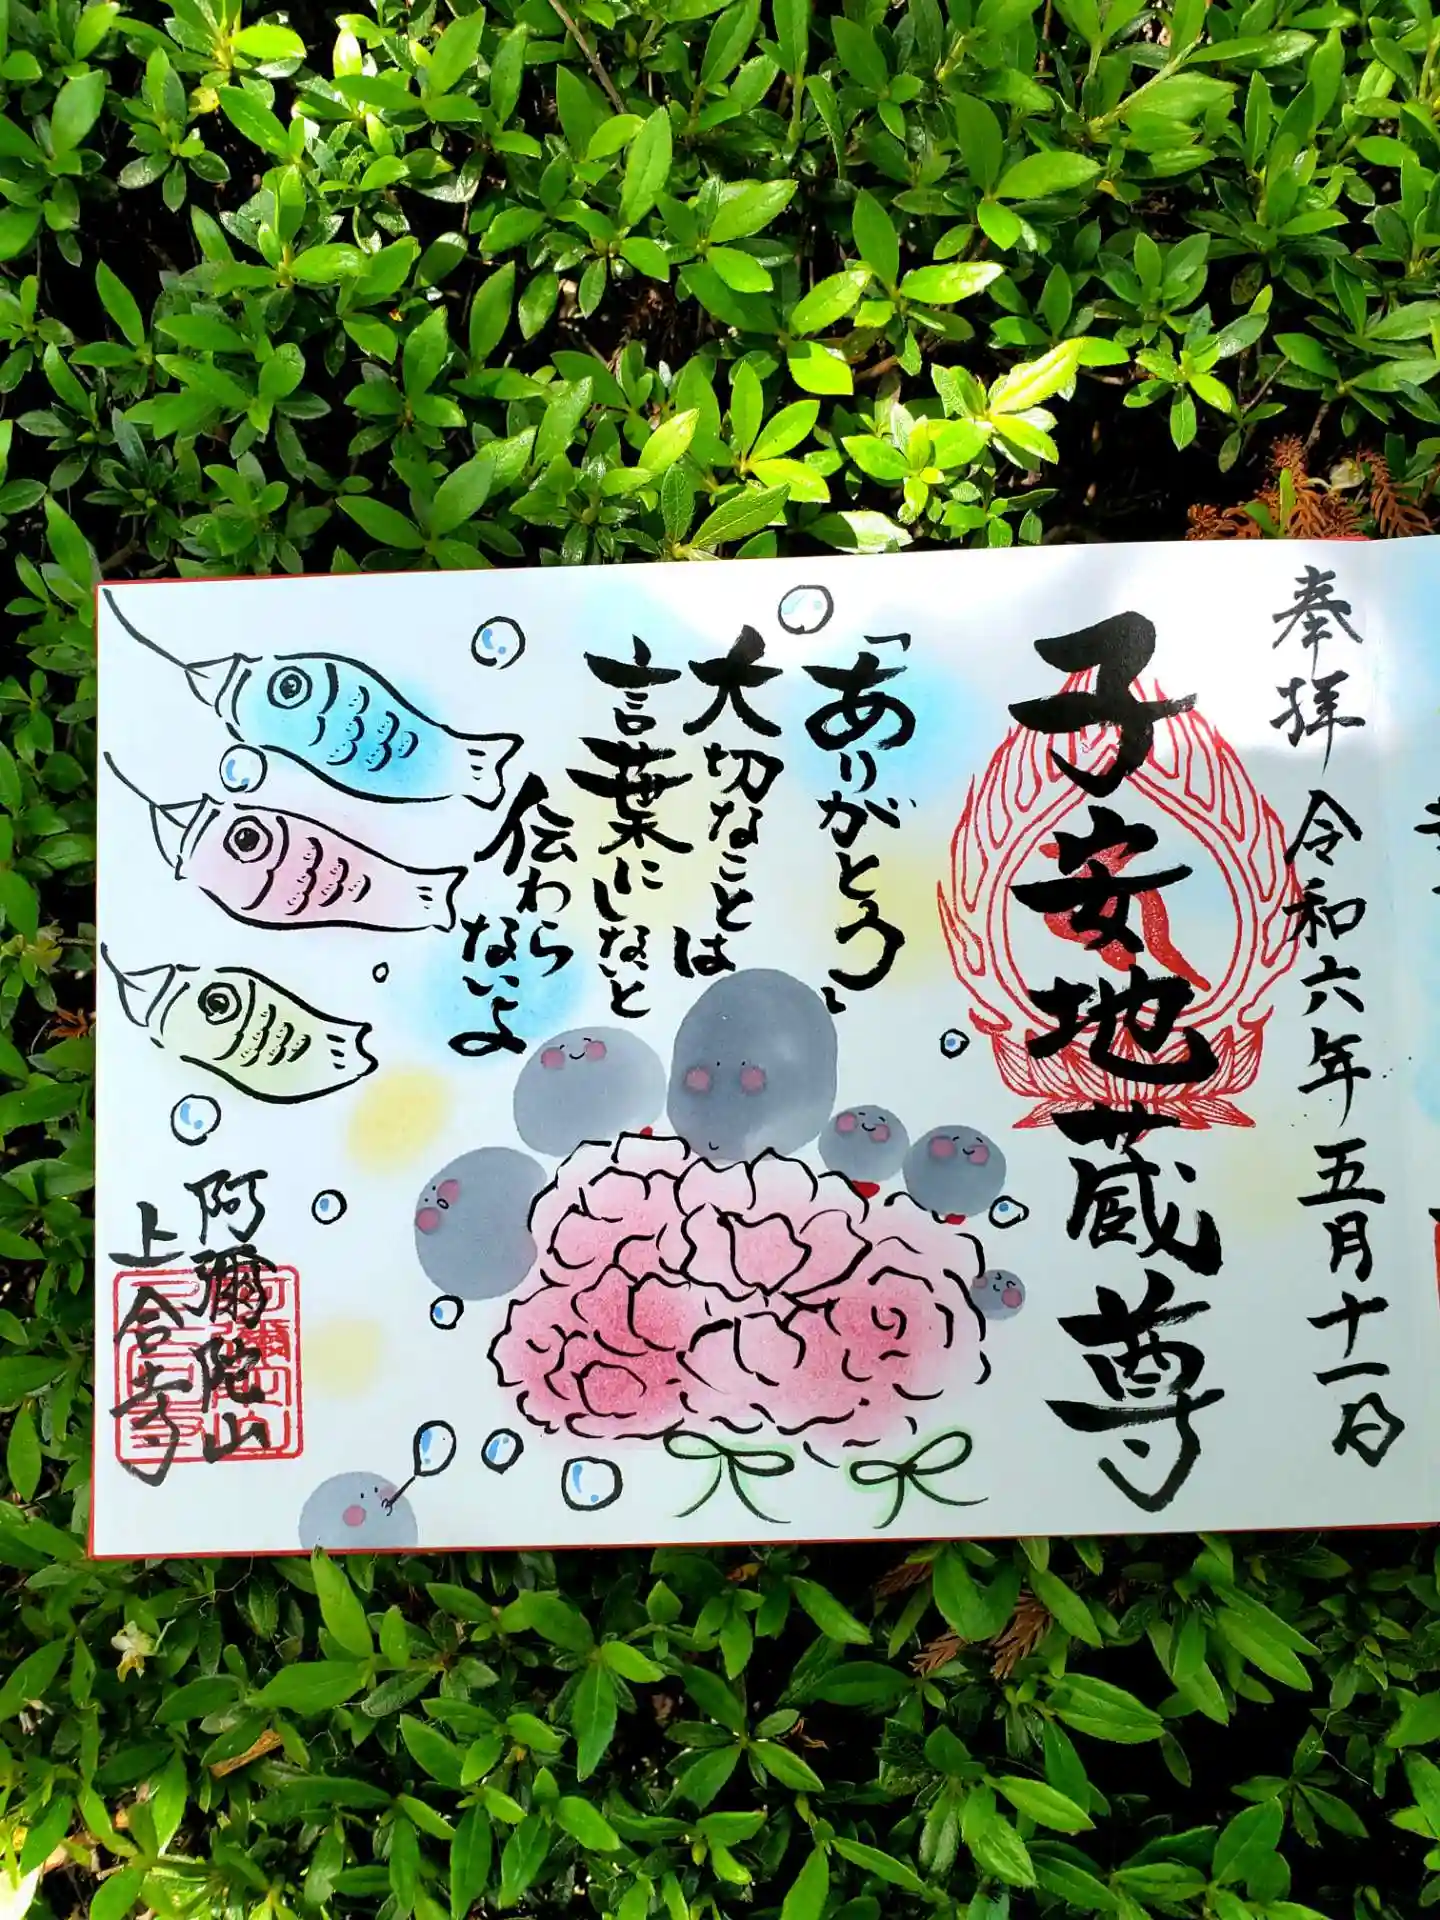 奉拝 令和六年五月十一日
子安地蔵尊
「ありがとう」
大切なことは
言葉にしないと
伝わら
ないよ
阿爾陀山
上合寺